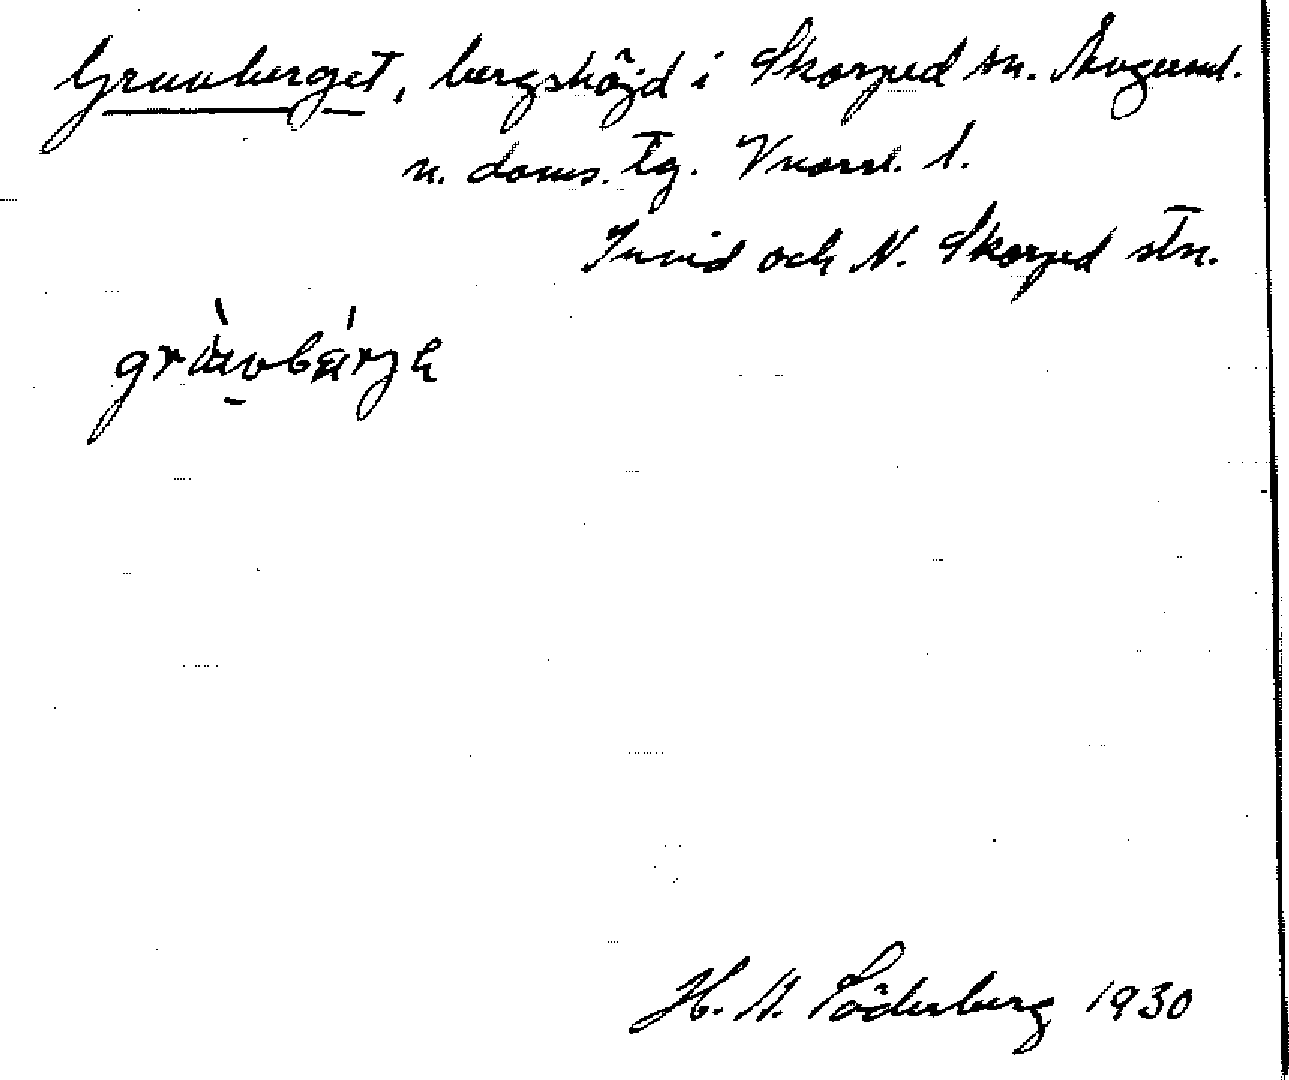 Gruvberget, bergshöjd i Skorped sn. Ångerml.
n. doms. tg. Vnorrl. l.
Invid och N. Skorped stn.
grùvbárjɛ
H. A. Söderberg 1930